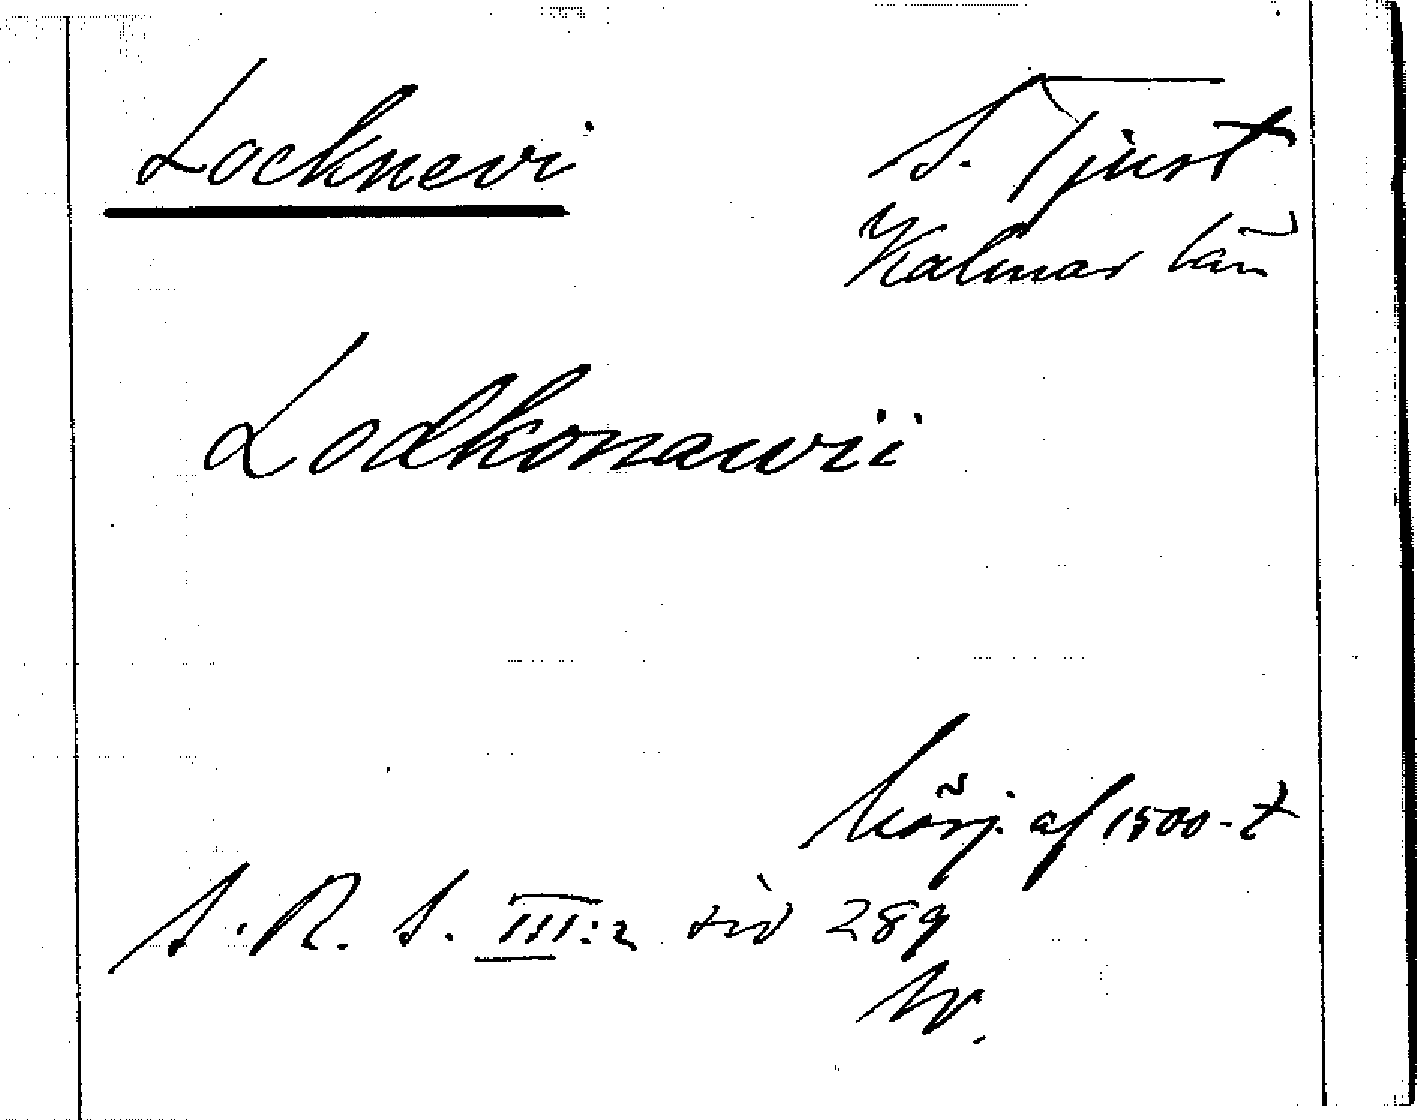 Locknevi
S. Tjust
Kalmar län
Lodkonawii
börj. af 1500-t
S. R. S. III:2 sid 289